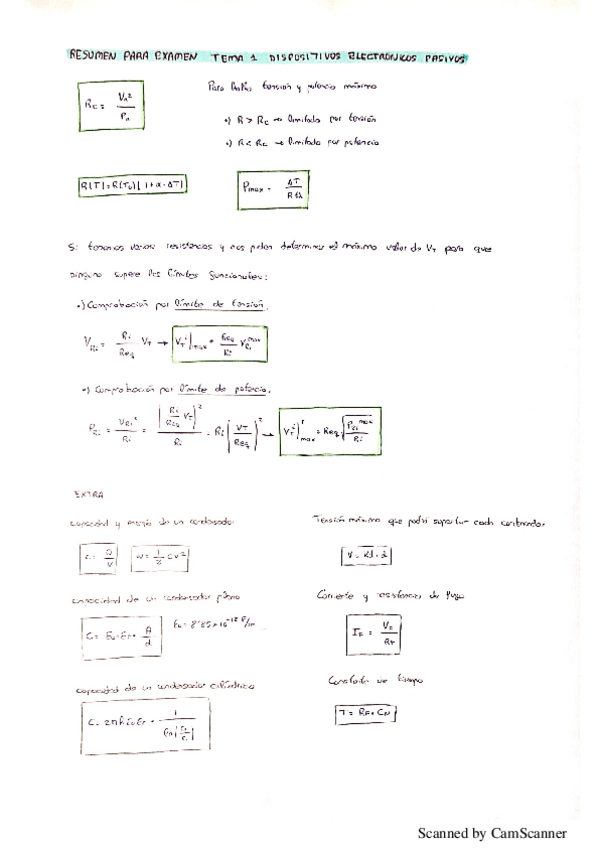 RESUMEN PARA EXAMEN TEMA 1 DISPOSITIVOS ELECTRÓNICOS PASIVOS
Rc = Vn² / Pn
tensión y potencia máxima
•) R > Rc → limitada por tensión
•) R < Rc → limitada por potencia
R(T) = R(T0)[1 + α · ΔT]
Pmax = ΔT / Rth
Si tenemos varias resistencias y nos piden determinar el máximo valor de VT para que
ninguna supere los límites funcionales:
•) Comprobación por límite de tensión.
VRi = Ri / Req VT → VTⁱ|max = Req / Ri VRi^max
•) Comprobación por límite de potencia.
PRi = VRi² / Ri = (Ri / Req VT)² / Ri = Ri (VT / Req)² → VTⁱ|max = Req √(PRi^max / Ri)
EXTRA
Capacidad y energía de un condensador
C = Q / V
W = 1/2 CV²
Tensión máxima que podrá soportar cada condensador
V = Kd · d
Capacidad de un condensador plano
C = E0 · Er · A / d
E0 = 8'85 × 10⁻¹² F/m
Corriente y resistencia de fuga
Capacidad de un condensador cilíndrico
Constante de tiempo
Scanned by CamScanner